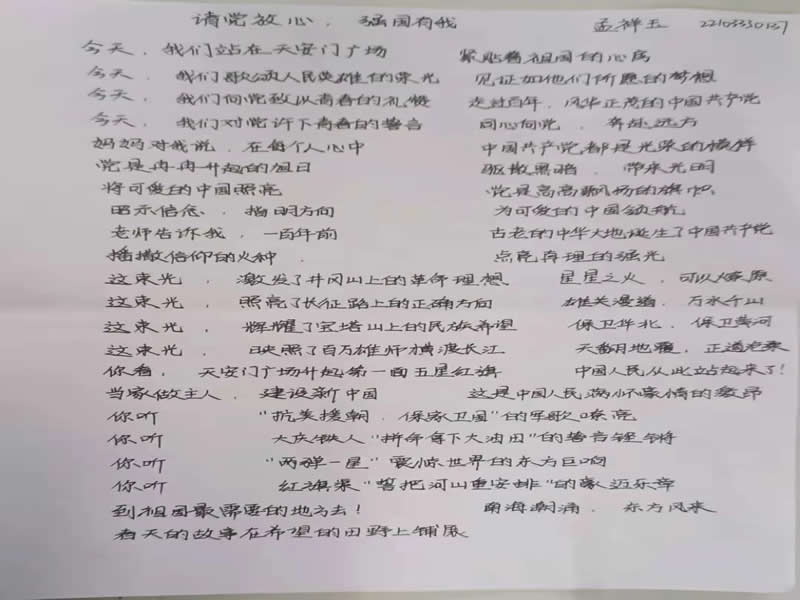 请党放心，强国有我 孟祥玉 22103350137
今天，我们站在天安门广场 紧贴着祖国的心房
今天，我们歌颂人民英雄的荣光 见证如他们所愿的梦想
今天，我们向党致以青春的礼赞 走过百年，风华正茂的中国共产党
今天，我们对党许下青春的誓言 同心向党，奔赴远方
妈妈对我说，在每个人心中 中国共产党都是光荣的模样
党是冉冉升起的旭日 驱散黑暗，带来光明
将可爱的中国照亮 党是高高飘扬的旗帜
昭示信念，指明方向 为可爱的中国领航
老师告诉我，一百年前 古老的中华大地诞生了中国共产党
播撒信仰的火种 点亮真理的强光
这束光，激发了井冈山上的革命理想 星星之火，可以燎原
这束光，照亮了长征路上的正确方向 雄关漫道，万水千山
这束光，辉耀了宝塔山上的民族希望 保卫华北，保卫黄河
这束光，映照了百万雄师横渡长江 天翻地覆，正道沧桑
你看，天安门广场升起第一面五星红旗 中国人民从此站起来了！
当家做主人，建设新中国 这是中国人民满怀豪情的激昂
你听 "抗美援朝，保家卫国"的军歌嘹亮
你听 大庆铁人"拼命拿下大油田"的誓言铿锵
你听 "两弹一星"震惊世界的东方巨响
你听 红旗渠"誓把河山重安排"的豪迈乐章
到祖国最需要的地方去！ 南海潮涌，东方风来
春天的故事在希望的田野上铺展